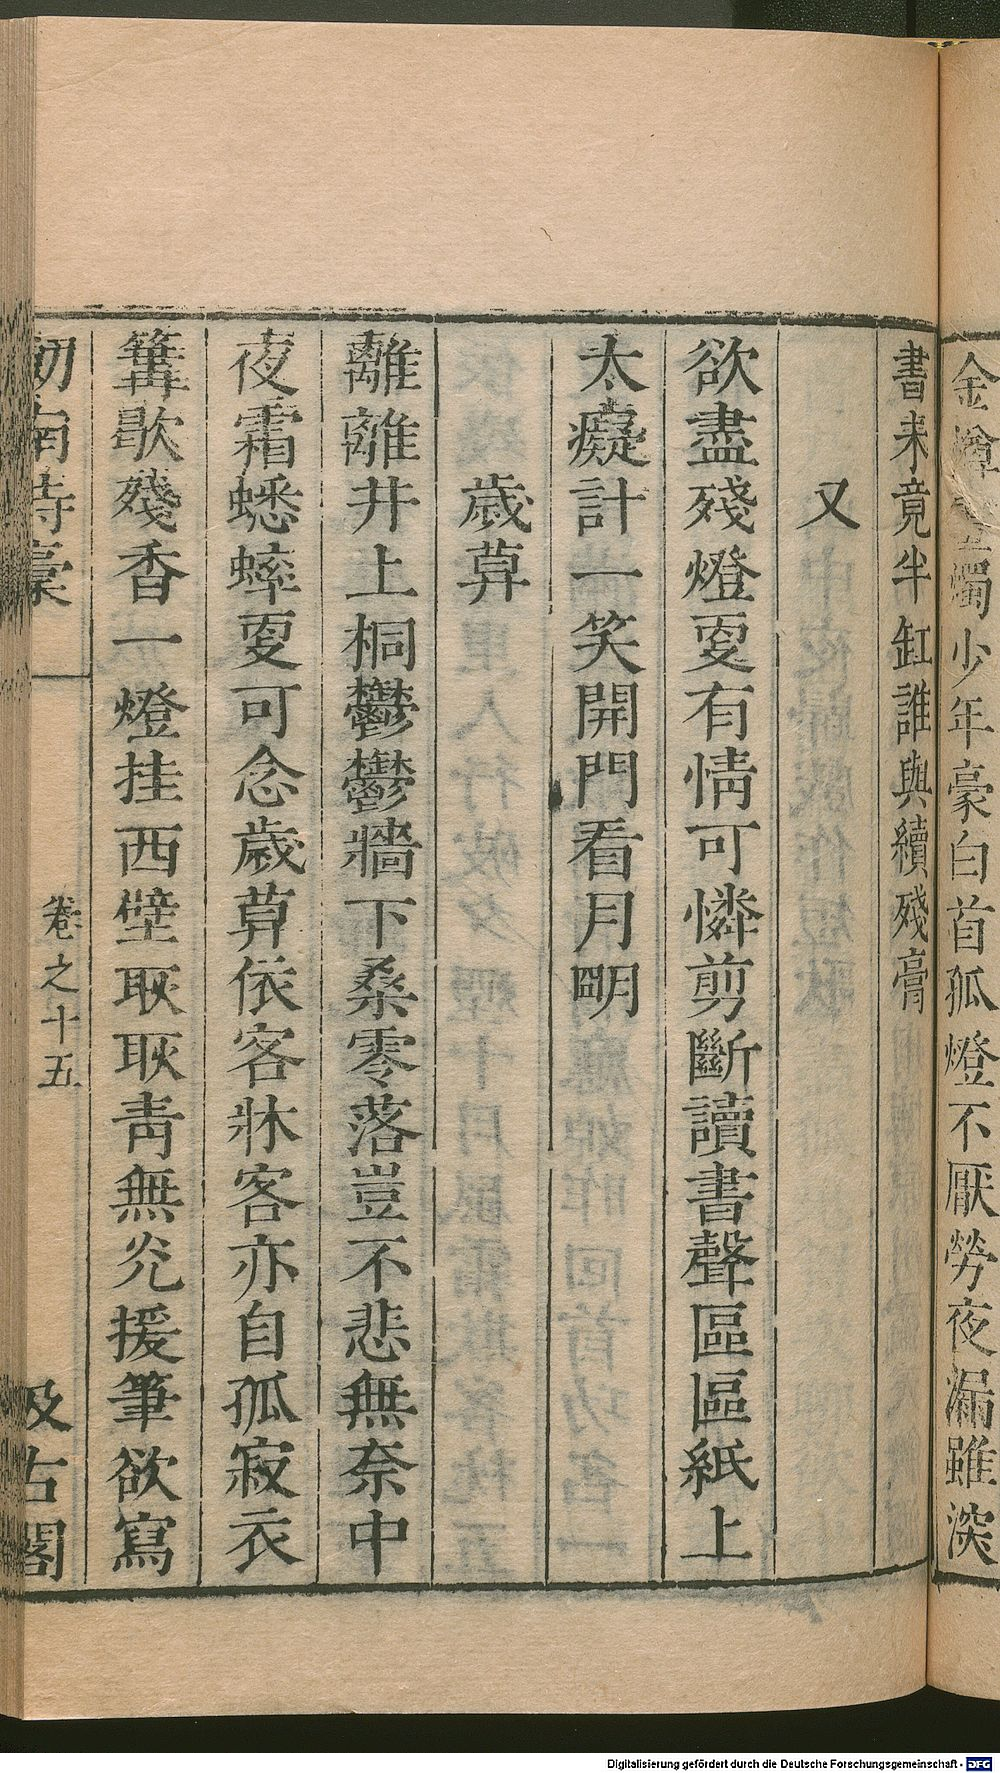 金樽翠燭少年豪白首孤燈不厭勞夜漏雖深
書来竟半缸誰與續殘膏
又
欲盡殘燈更有情可憐剪斷讀書聲區區紙上
太癡計一笑開門看月朙
歲莫
離離井上桐鬱鬱牆下桑零落豈不悲無奈中
夜霜蟋蟀更可念歲莫依客牀客亦自孤寂衣
篝歇殘香一燈挂西壁耿耿青無光援筆欲寫
劒南詩稾
卷之十五
汲古閣
Digitalisierung gefördert durch die Deutsche Forschungsgemeinschaft - DFG